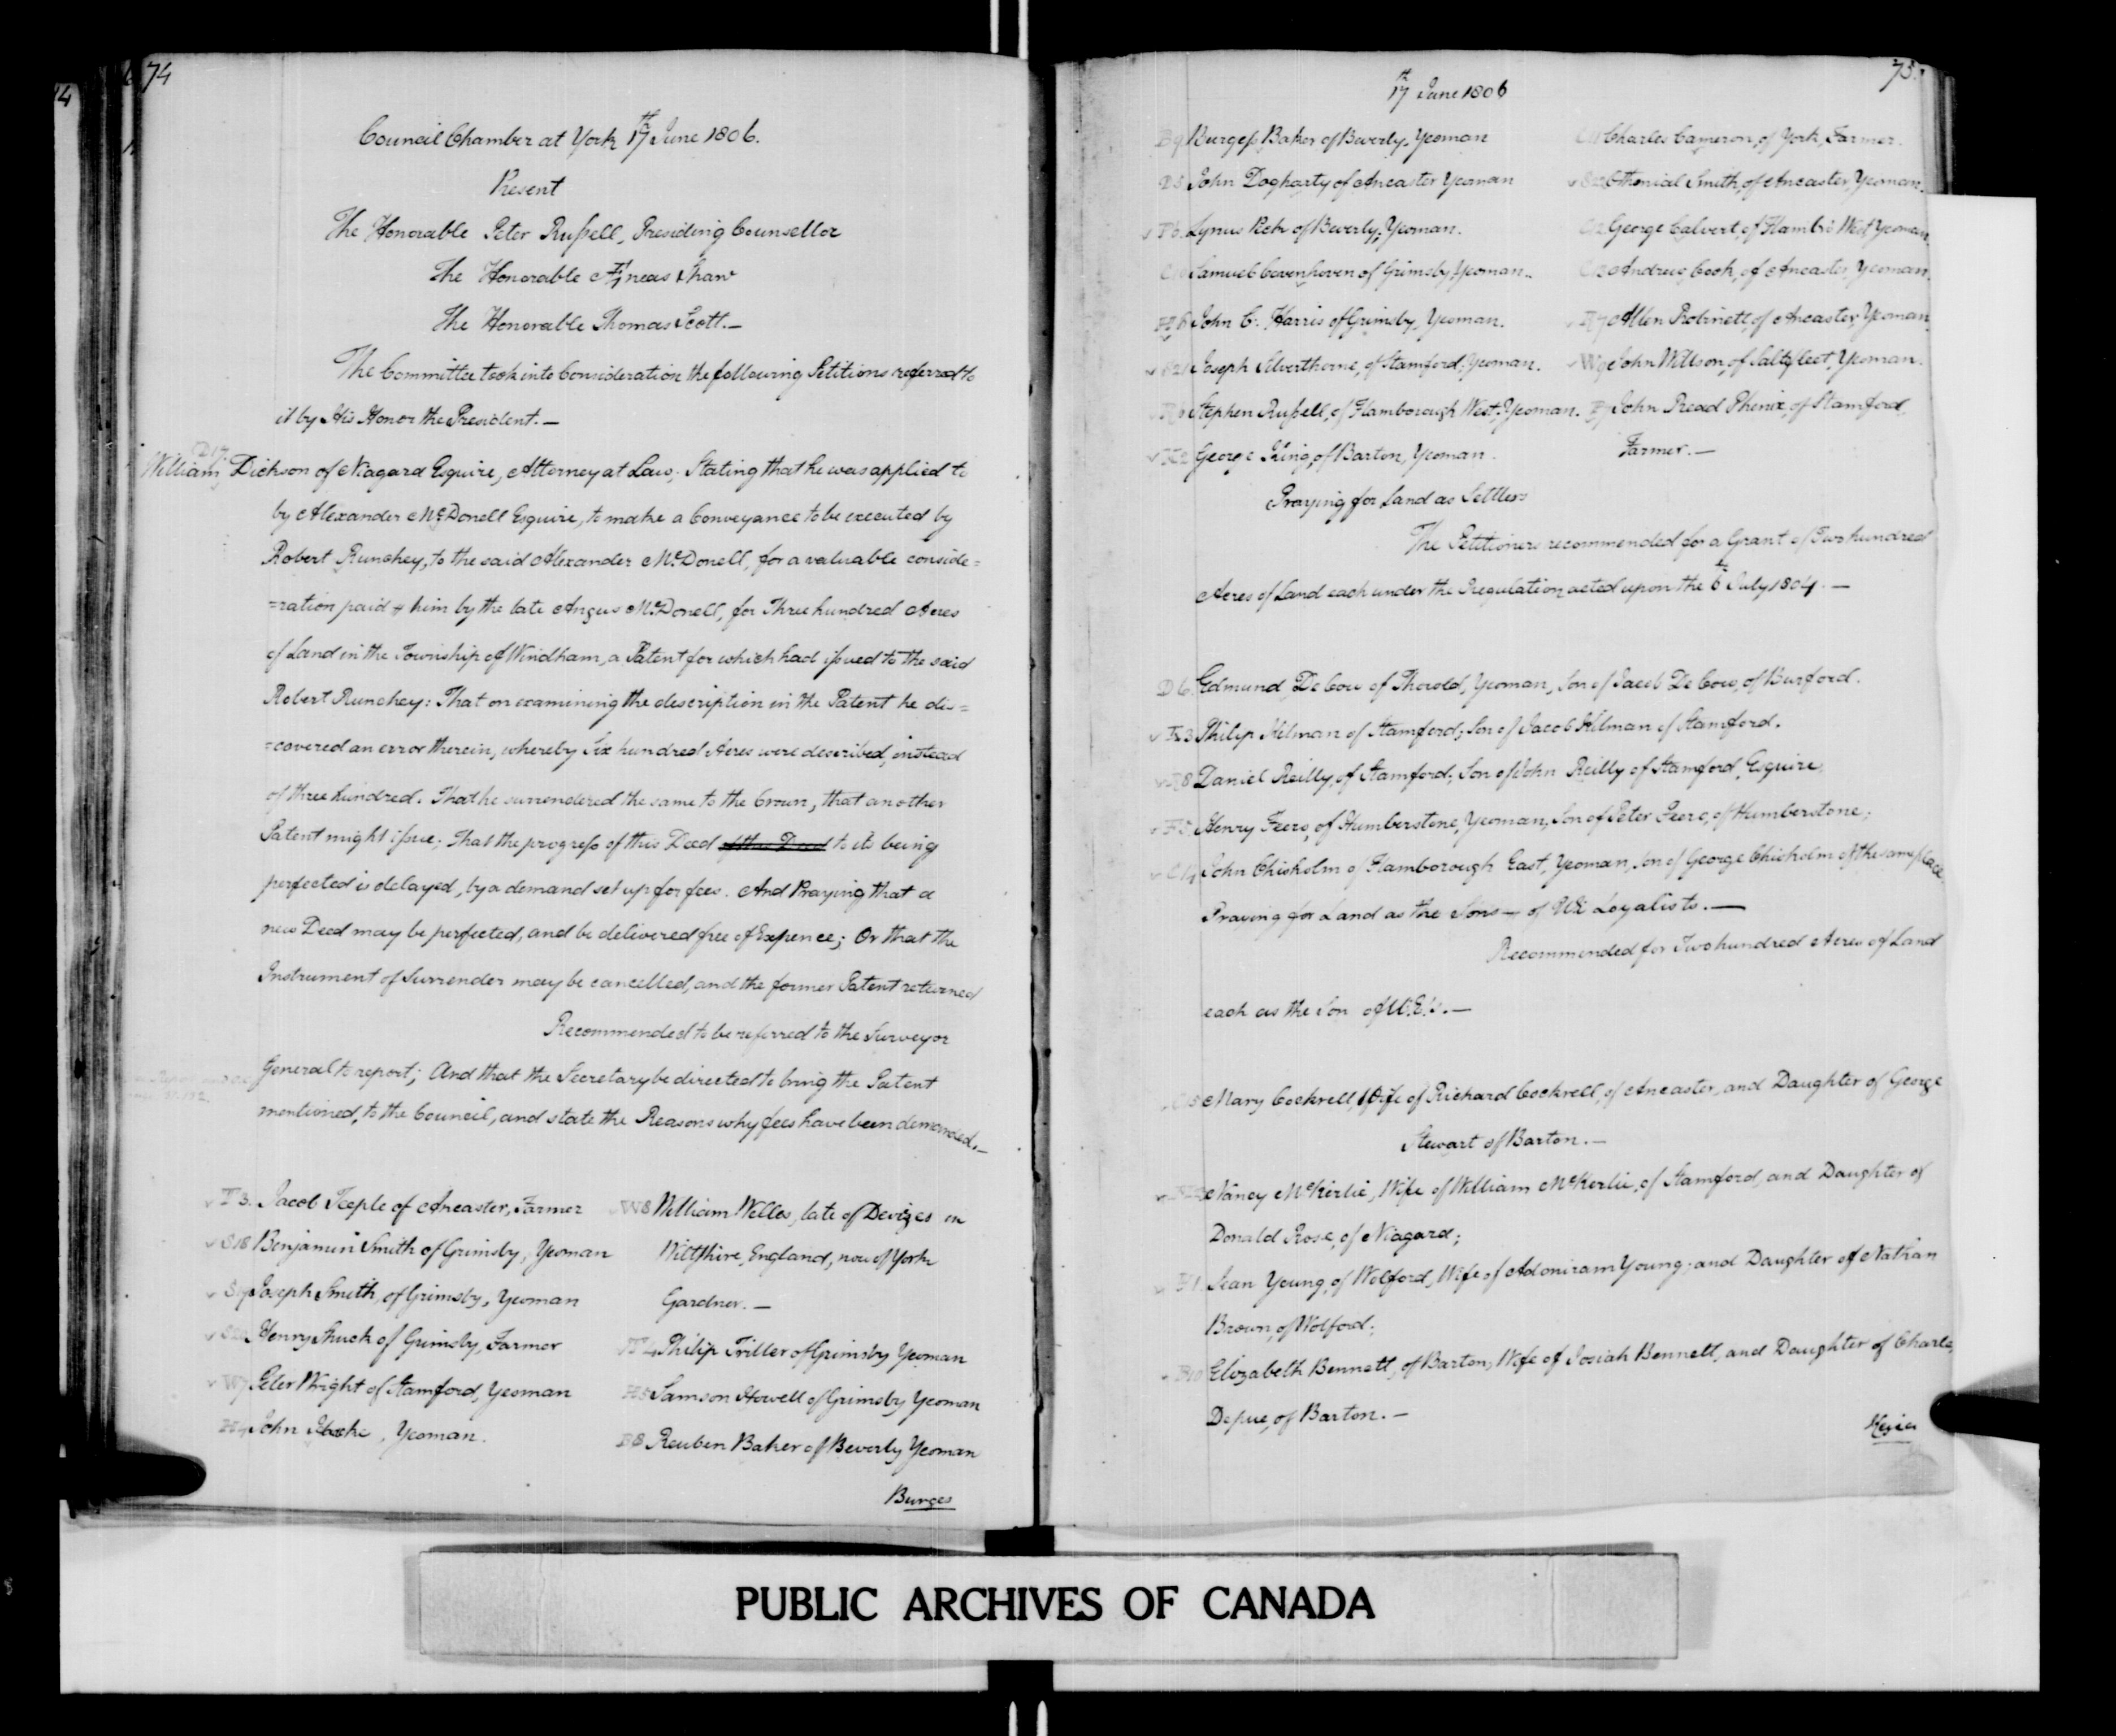 74
Council Chamber at York 17th June 1806.
Present
The Honorable Peter Russell, Presiding Counsellor
The Honorable Æneas Shaw
The Honorable Thomas Scott.—
The Committee took into Consideration the following Petitions referred to
it by His Honor the President.—
D17
William Dickson of Niagara Esquire, Attorney at Law; Stating that he was applied to
by Alexander McDonell Esquire, to make a Conveyance to be executed by
Robert Runchey, to the said Alexander McDonell, for a valuable conside=
=ration paid him by the late Angus McDonell, for Three hundred Acres
of Land in the Township of Windham, a Patent for which had issued to the said
Robert Runchey: That on examining the description in the Patent he dis=
=covered an error therein, whereby Six hundred Acres were described, instead
of three hundred. That he surrendered the same to the Crown, that another
Patent might issue; That the progress of this Deed of the Deed to its being
perfected is delayed, by a demand set up for fees. And Praying that a
new Deed may be perfected, and be delivered free of Expence; Or that the
Instrument of Surrender may be cancelled, and the former Patent returned
Recommended to be referred to the Surveyor
General to report; And that the Secretary be directed to bring the Patent
mentioned, to the Council, and state the Reasons why fees have been demanded.—
T3. Jacob Teeple of Ancaster, Farmer
S18 Benjamin Smith of Grimsby, Yeoman
S19 Joseph Smith, of Grimsby, Yeoman
Henry Shuck of Grimsby, Farmer
W7 Peter Wright of Stamford, Yeoman
H4 John , Yeoman.
W8 William Welles, late of Devizes in
Wiltshire, England, now of York
Gardner.—
T4 Philip Triller of Grimsby Yeoman
H5 Samson Howell of Grimsby Yeoman
B8 Reuben Baker of Beverly Yeoman
Burges
75.
17th June 1806
B9 Burgess Baker of Beverly, Yeoman
D5 John Dogharty of Ancaster Yeoman
P6. Lynus Peck of Beverly, Yeoman.
Samuel Covenhoven of Grimsby, Yeoman..
H6 John C. Harris of Grimsby, Yeoman.
S21 Joseph Silverthorne, of Stamford, Yeoman.
R6 Stephen Russell, of Flamborough West, Yeoman.
K2 George King, of Barton, Yeoman.
C11 Charles Cameron, of York, Farmer.
S22 Othonial Smith, of Ancaster, Yeoman.
C12 George Calvert, of Flambro West Yeoman
C13 Andrew Cook, of Ancaster, Yeoman.
R7 Allen Robinett, of Ancaster, Yeoman
W9 John Willson, of Saltfleet, Yeoman.
P7 John Read Phenix, of Stamford,
Farmer.—
Praying for Land as Settlers
The Petitioners recommended for a Grant of Two hundred
Acres of Land each under the Regulation acted upon the 6th July 1804.—
D6. Edmund DeCow of Thorold, Yeoman, Son of Jacob DeCow, of Burford.
K3 Philip Kilman of Stamford; Son of Jacob Kilman of Stamford.
R8 Daniel Reilly, of Stamford; Son of John Reilly of Stamford, Esquire,
F5 Henry Feero, of Humberstone, Yeoman, Son of Peter Feero, of Humberstone;
C14 John Chisholm of Flamborough East, Yeoman, Son of George Chisholm of the same place
Praying for Land as the Sons of UE Loyalists.—
Recommended for Two hundred Acres of Land
each as the Son of U.E.'s.—
C15 Mary Cockrell, Wife of Richard Cockrell, of Ancaster, and Daughter of George
Stewart of Barton.—
Nancy McKerlie, Wife of William McKerlie, of Stamford, and Daughter of
Donald Rose, of Niagara;
Y1. Jean Young, of Wolford, Wife of Adoniram Young; and Daughter of Nathan
Brown, of Wolford;
B10 Elizabeth Bennett, of Barton, Wife of Josiah Bennett, and Daughter of Charles
Depue, of Barton.—
Kezia
PUBLIC ARCHIVES OF CANADA